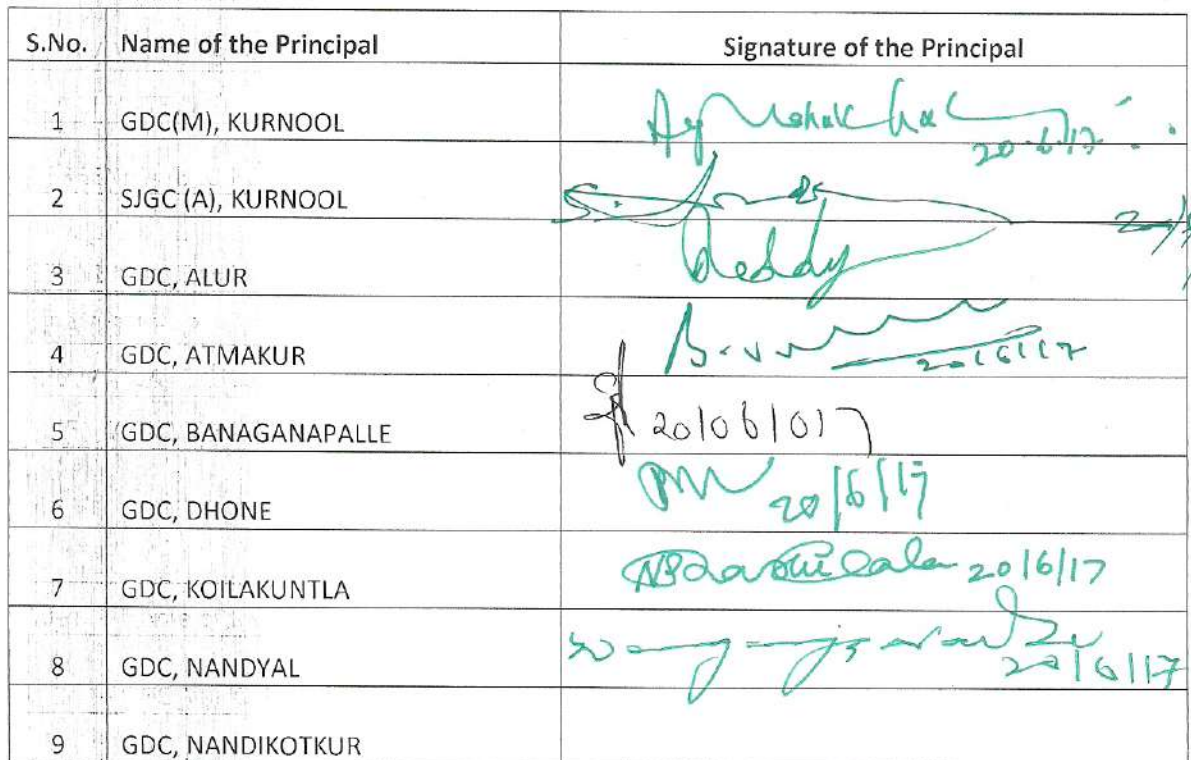 S.No. Name of the Principal Signature of the Principal
1 GDC(M), KURNOOL
20.6.17
2 SJGC (A), KURNOOL
3 GDC, ALUR Reddy
4 GDC, ATMAKUR
20/6/17
5 GDC, BANAGANAPALLE 20/06/017
6 GDC, DHONE 20/6/17
7 GDC, KOILAKUNTLA 20/6/17
8 GDC, NANDYAL 20/6/17
9 GDC, NANDIKOTKUR